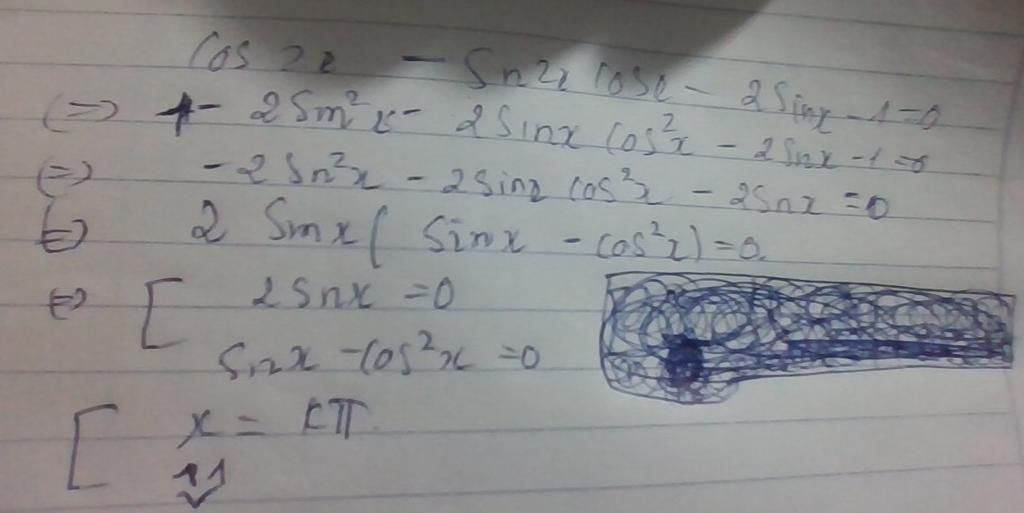 cos 2x - sin2x cosx - 2 sinx - 1 = 0
(=) 1 - 2 sin²x - 2 sinx cos²x - 2 sinx - 1 = 0
(=) - 2 sin²x - 2 sinx cos²x - 2 sinx = 0
(=) 2 sinx ( sinx - cos²x) = 0
(=) [ 2 sinx = 0
sinx - cos²x = 0
[ x = kπ